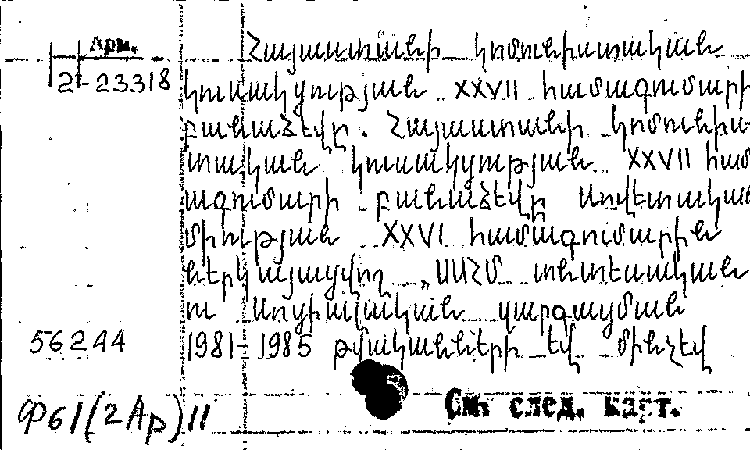 Арм.
2-23318
Հայաստանի կոմունիստական
կուսակցության XXVII համագումարի
բանաձեվը. Հայաստանի կոմունիս
տական կուսակցության XXVII համ
ագումարի բանաձեվը Սովետական
միության XXVI համագումարին
ներկայացվող „ՍՍՀՄ տնտեսական
ու սոցիալական զարգացման
1981-1985 թվականների եվ մինչեվ
56244
Ф61(2Ар)11
См. след. карт.